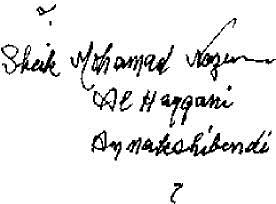 Sheik Mohamad Nazem
Al Haqqani
Annakshibendi